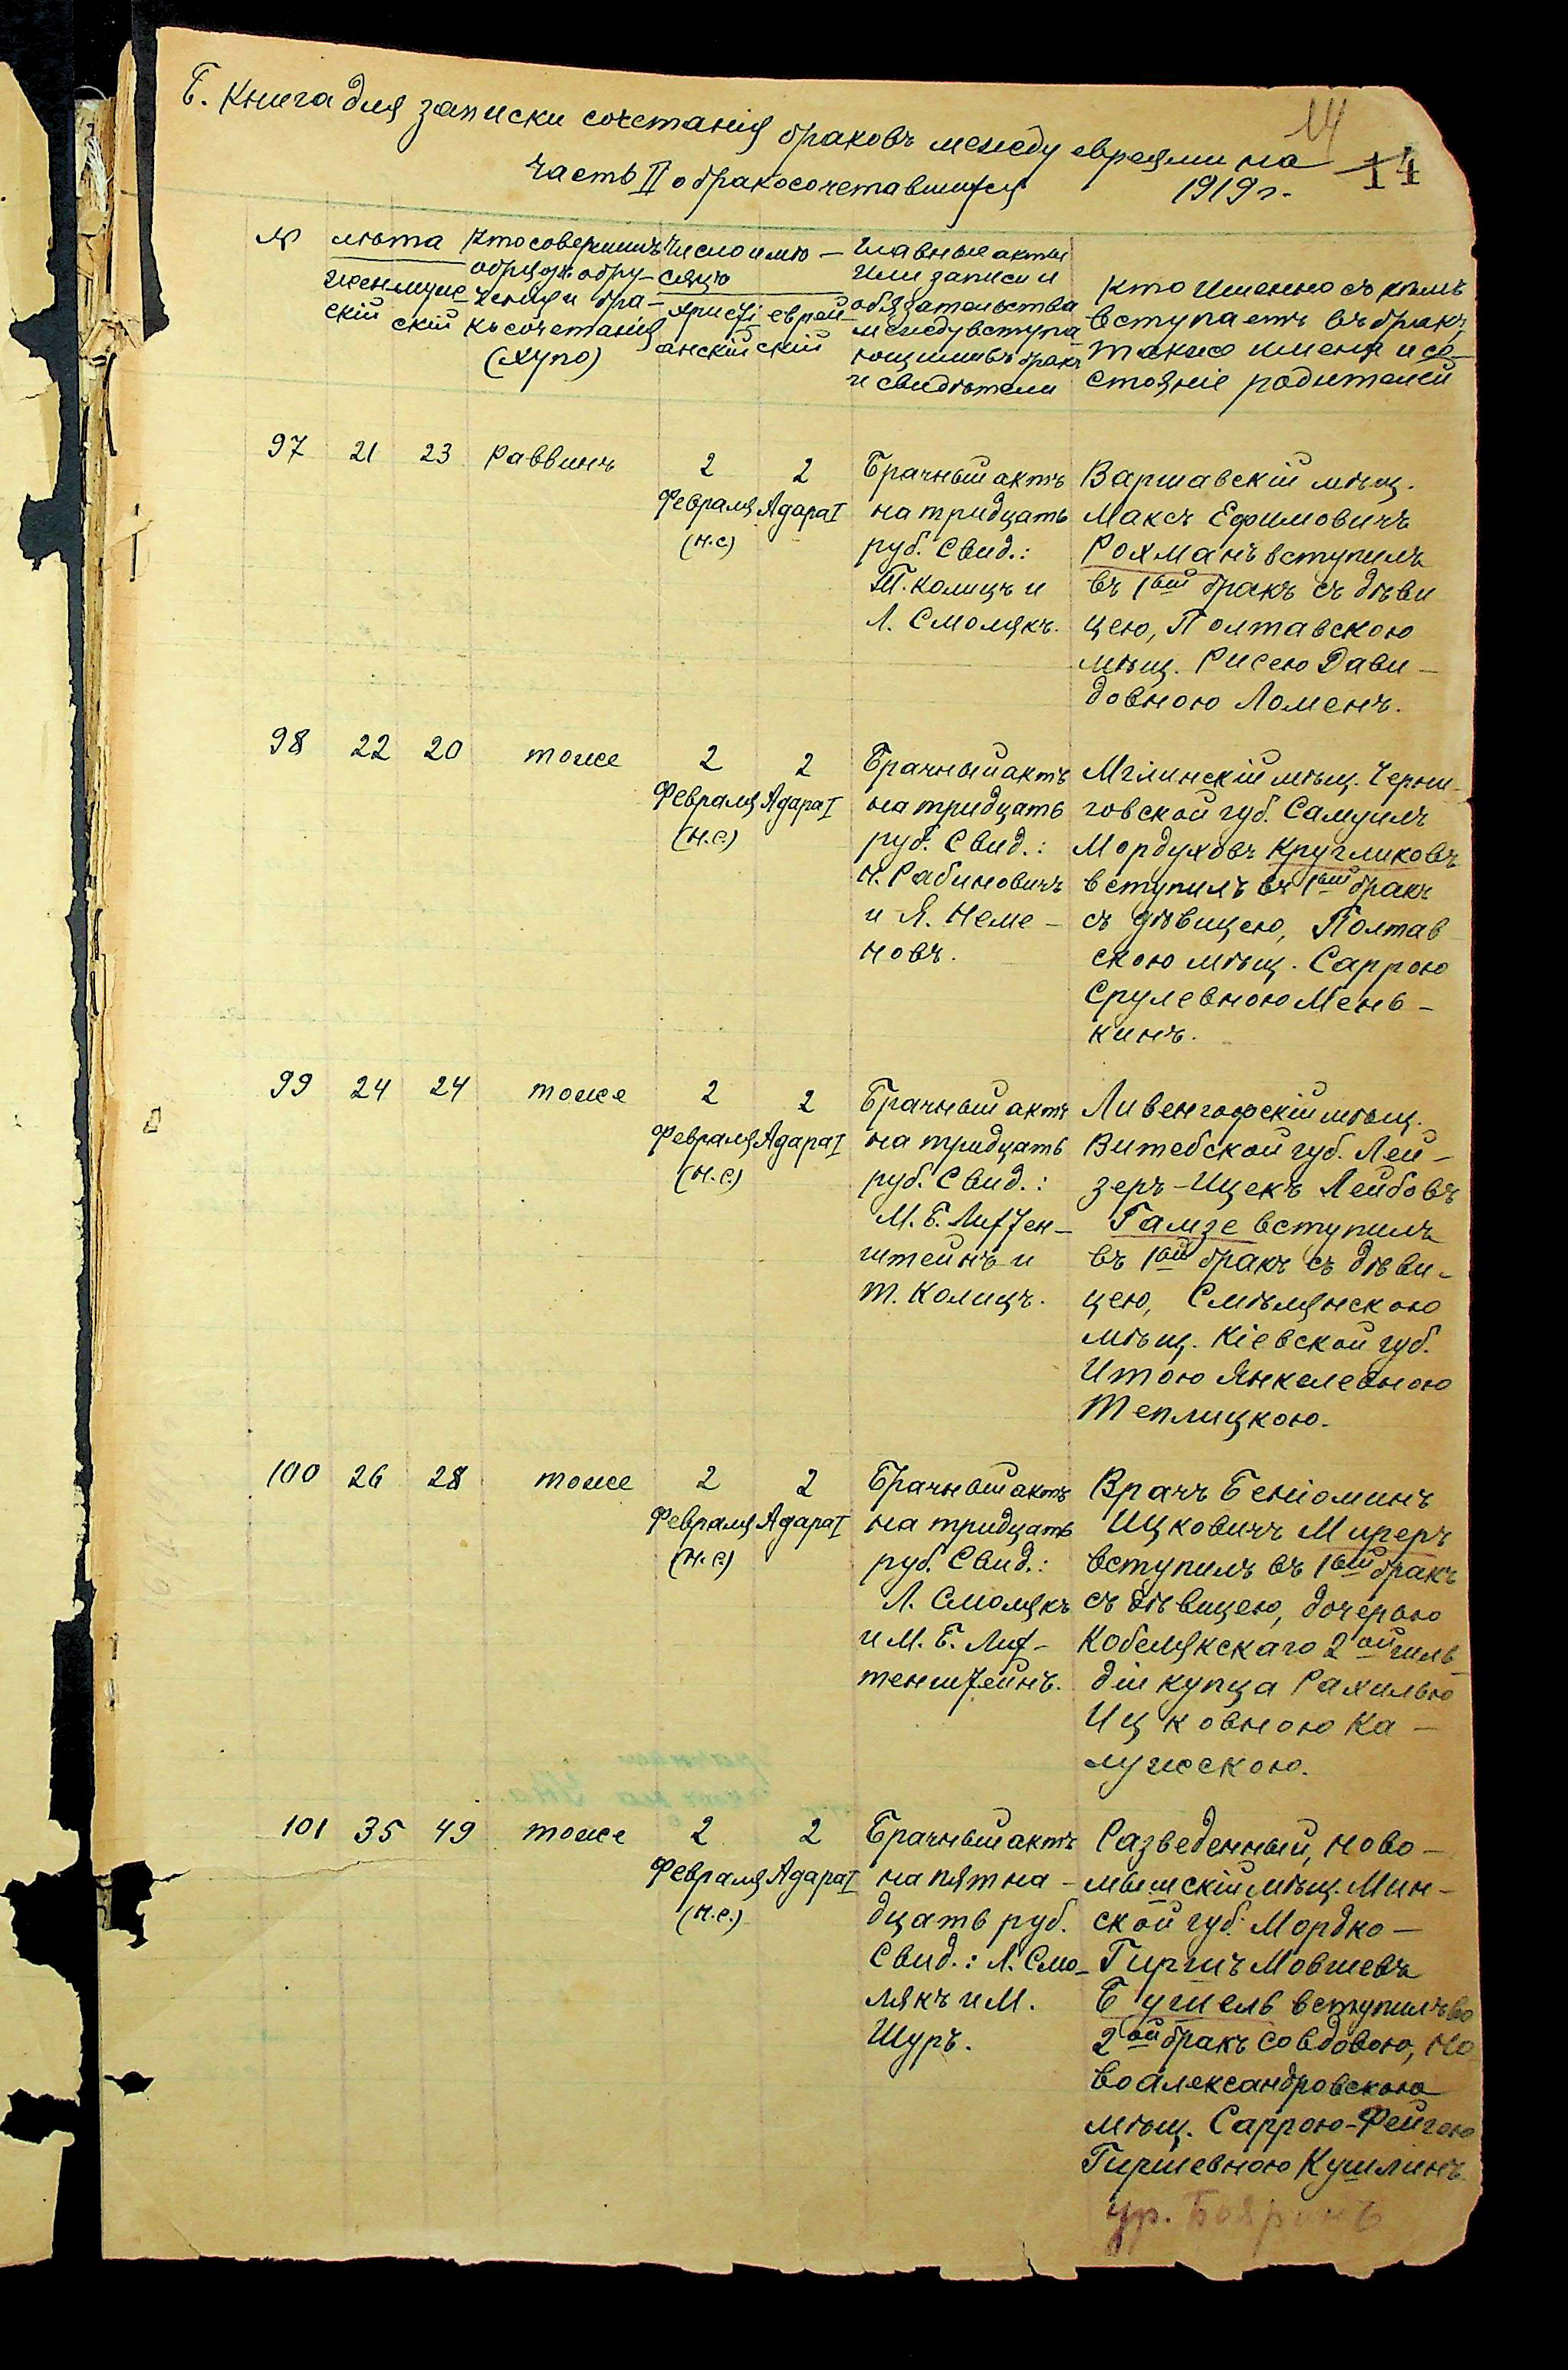 Б. Книга для записки сочетанія браковъ между евреями на
14
14
Часть II о бракосочетавшихся
1919 г.
№
лѣта
женскій
мужескій
Кто совершилъ
обрядъ обру-
ченія и бра-
косочетанія
(хупо)
Число и мѣ-
сяцъ
христі
анскій
еврей
скій
Главные акты
или записи и
обязательства
между вступа
ющими въ бракъ
и свидѣтели
Кто именно съ кѣмъ
вступаетъ въ бракъ,
также имена и со-
стояніе родителей
97 21 23 Раввинъ
2
Февраля
(н.с)
2
Адара I
Брачный актъ
на тридцать
руб. Свид.:
Т. Колицъ и
Л. Смолякъ.
Варшавскій мѣщ.
Максъ Ефимовичъ
Рохманъ вступилъ
въ 1ый бракъ съ дѣви
цею, Полтавскою
мѣщ. Рисею Дави-
довною Ломенъ.
98 22 20 тоже
2
Февраля
(н.с.)
2
Адара I
Брачный актъ
на тридцать
руб. Свид.:
Н. Рабиновичъ
и Я. Неме-
новъ.
Мглинскій мѣщ. Черни-
говской губ. Самуилъ
Мордуховъ Кругликовъ
вступилъ въ 1ый бракъ
съ дѣвицею, Полтав
скою мѣщ. Саррою
Срулевною Мень-
кинъ.
99 24 24 тоже
2
Февраля
(н.с.)
2
Адара I
Брачный актъ
на тридцать
руб. Свид.:
М. Б. Лифтен-
штейнъ и
Т. Колицъ.
Ливенгофскій мѣщ.
Витебской губ. Лей-
зеръ-Ицекъ Лейбовъ
Гамзе вступилъ
въ 1ый бракъ съ дѣви-
цею, Смѣлянскою
мѣщ. Кіевской губ.
Итою Янкелевною
Теплицкою.
100 26 28 тоже
2
Февраля
(н.с.)
2
Адара I
Брачный актъ
на тридцать
руб. Свид.:
Л. Смолякъ
и М. Б. Лиф-
тенштейнъ.
Врачъ Беніоминъ
Ицковичъ Миреръ
вступилъ въ 1ый бракъ
съ дѣвицею, дочерью
Кобелякскаго 2ой гиль-
діи купца Рахилью
Ицковною Ка-
лужскою.
101 35 49 тоже
2
Февраля
(н.с.)
2
Адара I
Брачный актъ
на пятна-
дцать руб.
Свид.: Л. Смо-
лякъ и М.
Шуръ.
Разведенный, ново-
мышскій мѣщ. Мин-
ской губ. Мордко-
Гиршъ Мовшевъ
Бушель вступилъ во
2ой бракъ со вдовою, но
воалександровскою
мѣщ. Саррою-Фейгою
Гиршевною Кушлинъ
ур. Бояринъ